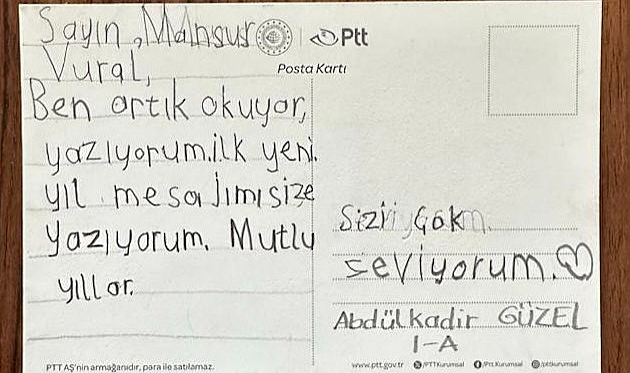 Sayın, Mansur
Vural,
Ben artık okuyor,
yazıyorum. ilk yeni
yıl mesajımı size
Yazıyorum. Mutlu
yıllar.
Ptt
Posta Kartı
Sizi çok
seviyorum. ♡
Abdülkadir GÜZEL
1-A
PTT AŞ'nin armağanıdır, para ile satılamaz.
www.ptt.gov.tr /PTTKurumsal /Ptt.Kurumsal @pttkurumsal